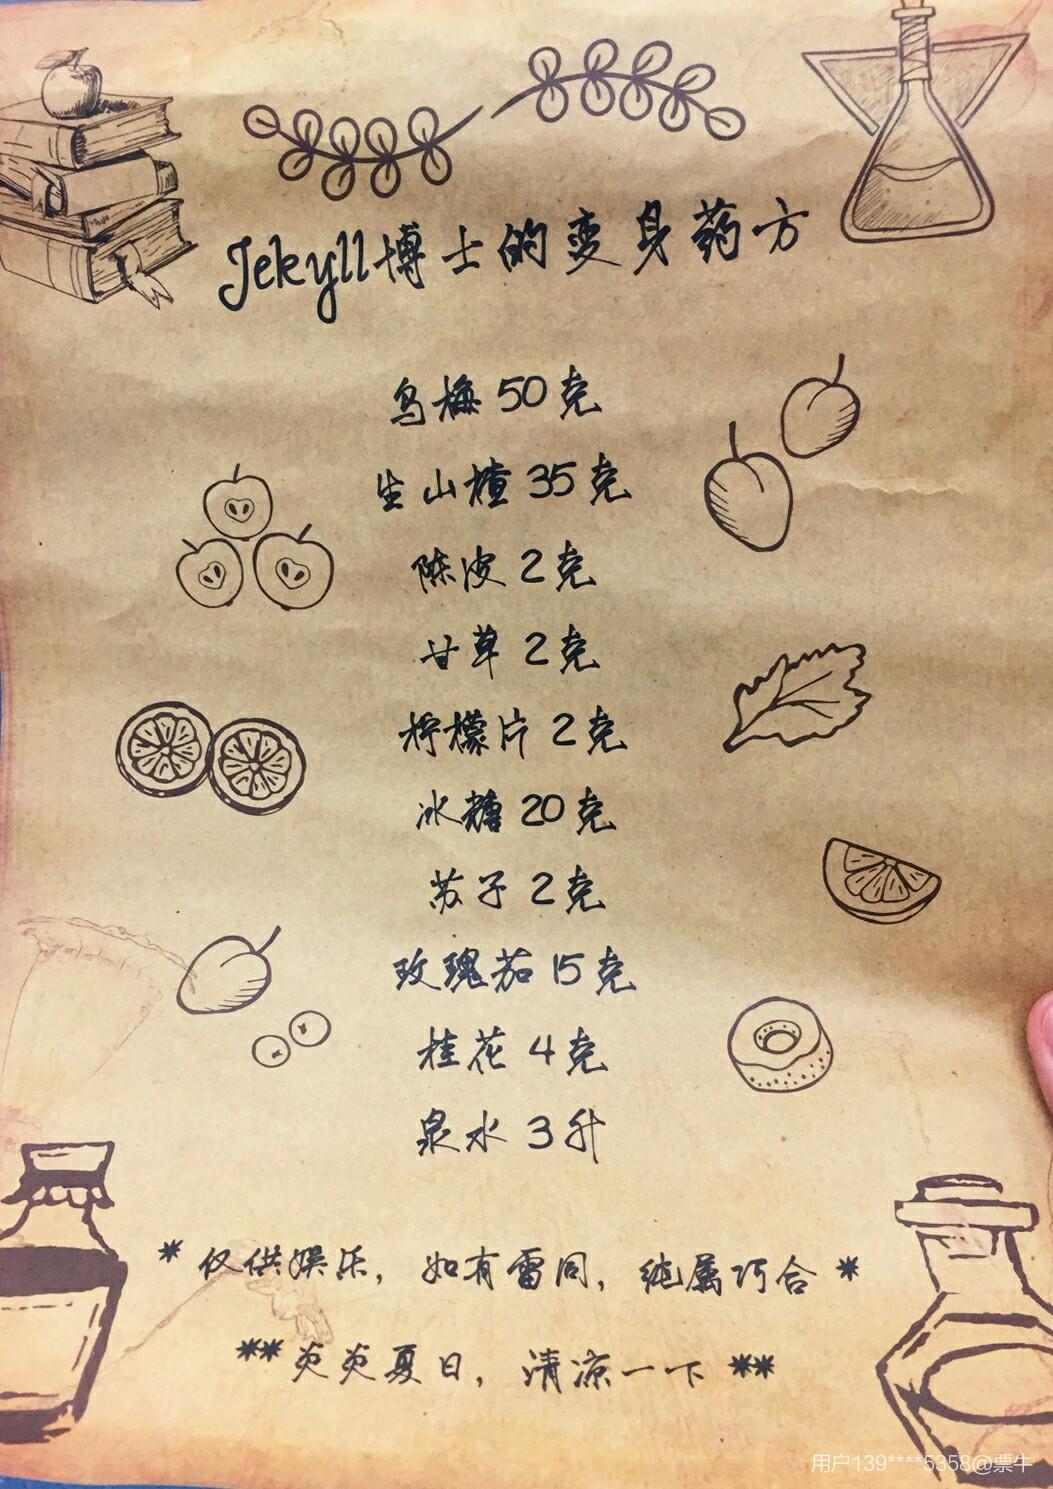 Jekyll博士的变身药方
乌梅 50 克
生山楂 35 克
陈皮 2 克
甘草 2 克
柠檬片 2 克
冰糖 20 克
苏子 2 克
玫瑰茄 15 克
桂花 4 克
泉水 3 升
* 仅供娱乐，如有雷同，纯属巧合 *
** 炎炎夏日，清凉一下 **
用户139****5358@票牛